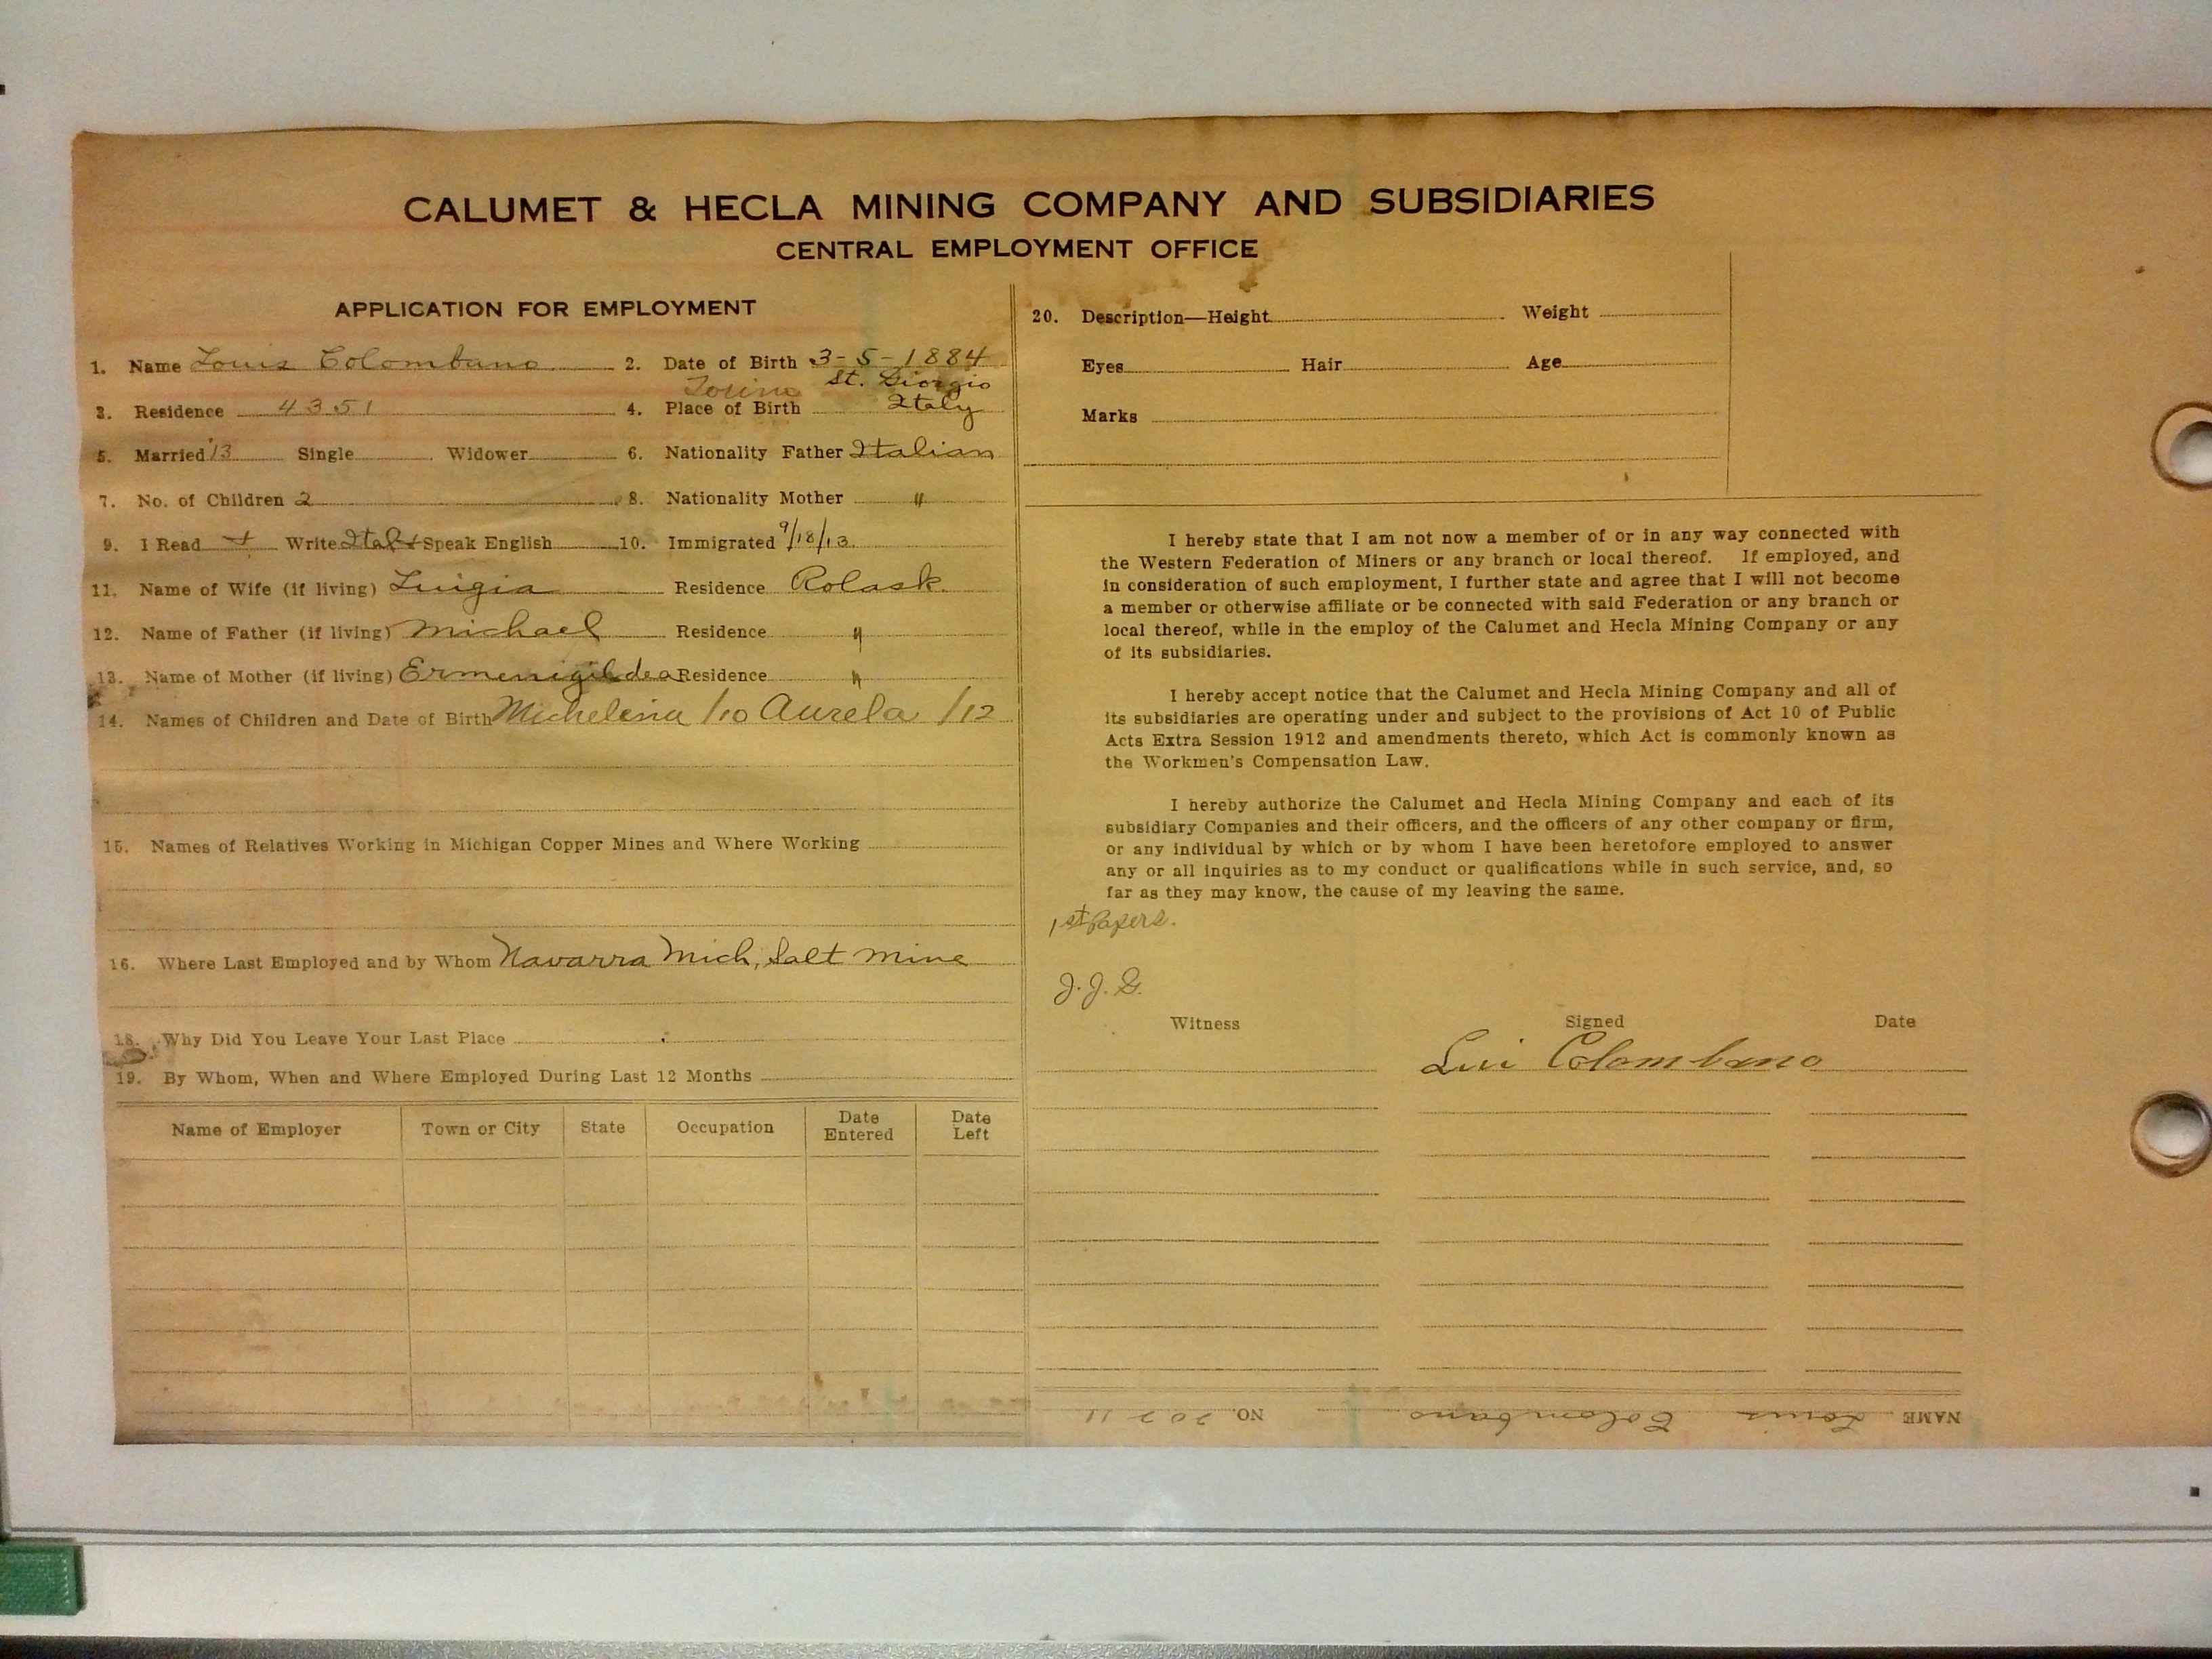 CALUMET & HECLA MINING COMPANY AND SUBSIDIARIES
CENTRAL EMPLOYMENT OFFICE
APPLICATION FOR EMPLOYMENT
1. Name Louis Colombano 2. Date of Birth 3-5-1884
Torino St. Giorgio
3. Residence 4351 4. Place of Birth Italy
5. Married '13 Single Widower 6. Nationality Father Italian
7. No. of Children 2 8. Nationality Mother "
9. I Read + Write Ital + Speak English 10. Immigrated 9/18/13
11. Name of Wife (if living) Luigia Residence Rolask
12. Name of Father (if living) Michael Residence "
13. Name of Mother (if living) Ermenigildea Residence "
14. Names of Children and Date of Birth Michelina /10 Aurela /12
15. Names of Relatives Working in Michigan Copper Mines and Where Working
16. Where Last Employed and by Whom Navarra Mich, Salt mine
18. Why Did You Leave Your Last Place
19. By Whom, When and Where Employed During Last 12 Months
Name of Employer Town or City State Occupation Date Entered Date Left
20. Description—Height Weight
Eyes Hair Age
Marks
I hereby state that I am not now a member of or in any way connected with
the Western Federation of Miners or any branch or local thereof. If employed, and
in consideration of such employment, I further state and agree that I will not become
a member or otherwise affiliate or be connected with said Federation or any branch or
local thereof, while in the employ of the Calumet and Hecla Mining Company or any
of its subsidiaries.
I hereby accept notice that the Calumet and Hecla Mining Company and all of
its subsidiaries are operating under and subject to the provisions of Act 10 of Public
Acts Extra Session 1912 and amendments thereto, which Act is commonly known as
the Workmen's Compensation Law.
I hereby authorize the Calumet and Hecla Mining Company and each of its
subsidiary Companies and their officers, and the officers of any other company or firm,
or any individual by which or by whom I have been heretofore employed to answer
any or all inquiries as to my conduct or qualifications while in such service, and, so
far as they may know, the cause of my leaving the same.
1st Papers.
J. J. G.
Witness Signed Date
Lui Colombano
NAME Louis Colombano NO. 20211